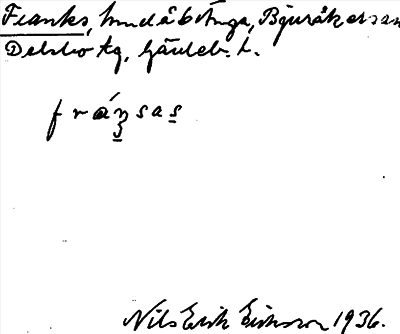 Franks, hundåbstuga, Bjuråker sn
Delsbo tg, Gävleb. l.
fránsas
Nils Erik Eriksson 1936.